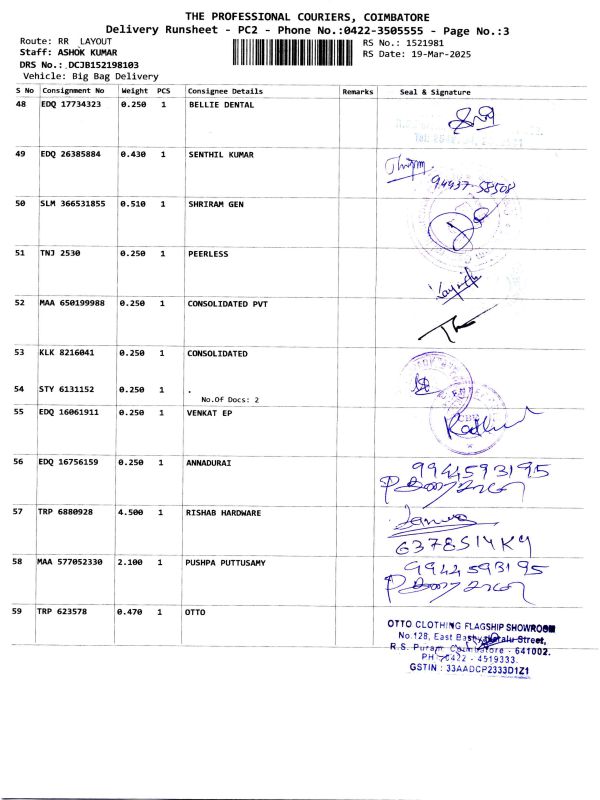 THE PROFESSIONAL COURIERS, COIMBATORE
Delivery Runsheet - PC2 - Phone No.:0422-3505555 - Page No.:3
Route: RR LAYOUT
RS No.: 1521981
Staff: ASHOK KUMAR
RS Date: 19-Mar-2025
DRS No.: DCJB152198103
Vehicle: Big Bag Delivery
S No Consignment No Weight PCS Consignee Details Remarks Seal & Signature
48 EDQ 17734323 0.250 1 BELLIE DENTAL
49 EDQ 26385884 0.430 1 SENTHIL KUMAR
94437-58508
50 SLM 366531855 0.510 1 SHRIRAM GEN
51 TNJ 2530 0.250 1 PEERLESS
52 MAA 650199988 0.250 1 CONSOLIDATED PVT
53 KLK 8216041 0.250 1 CONSOLIDATED
54 STY 6131152 0.250 1 .
No.Of Docs: 2
55 EDQ 16061911 0.250 1 VENKAT EP
56 EDQ 16756159 0.250 1 ANNADURAI
9944593195
57 TRP 6880928 4.500 1 RISHAB HARDWARE
58 MAA 577052330 2.100 1 PUSHPA PUTTUSAMY
9944593195
59 TRP 623578 0.470 1 OTTO
OTTO CLOTHING FLAGSHIP SHOWROOM
No.128, East Street,
R.S. Puram, Coimbatore - 641002.
PH : 0422 - 4519333.
GSTIN : 33AADCP2333D1Z1